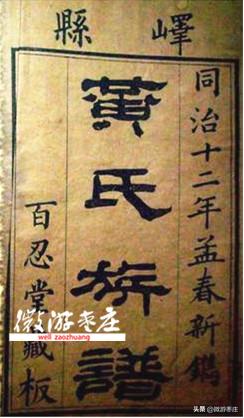 嶧縣
同治十二年孟春新鐫
黃氏族譜
百忍堂藏板
微游枣庄
well zaozhuang
头条 @微游枣庄